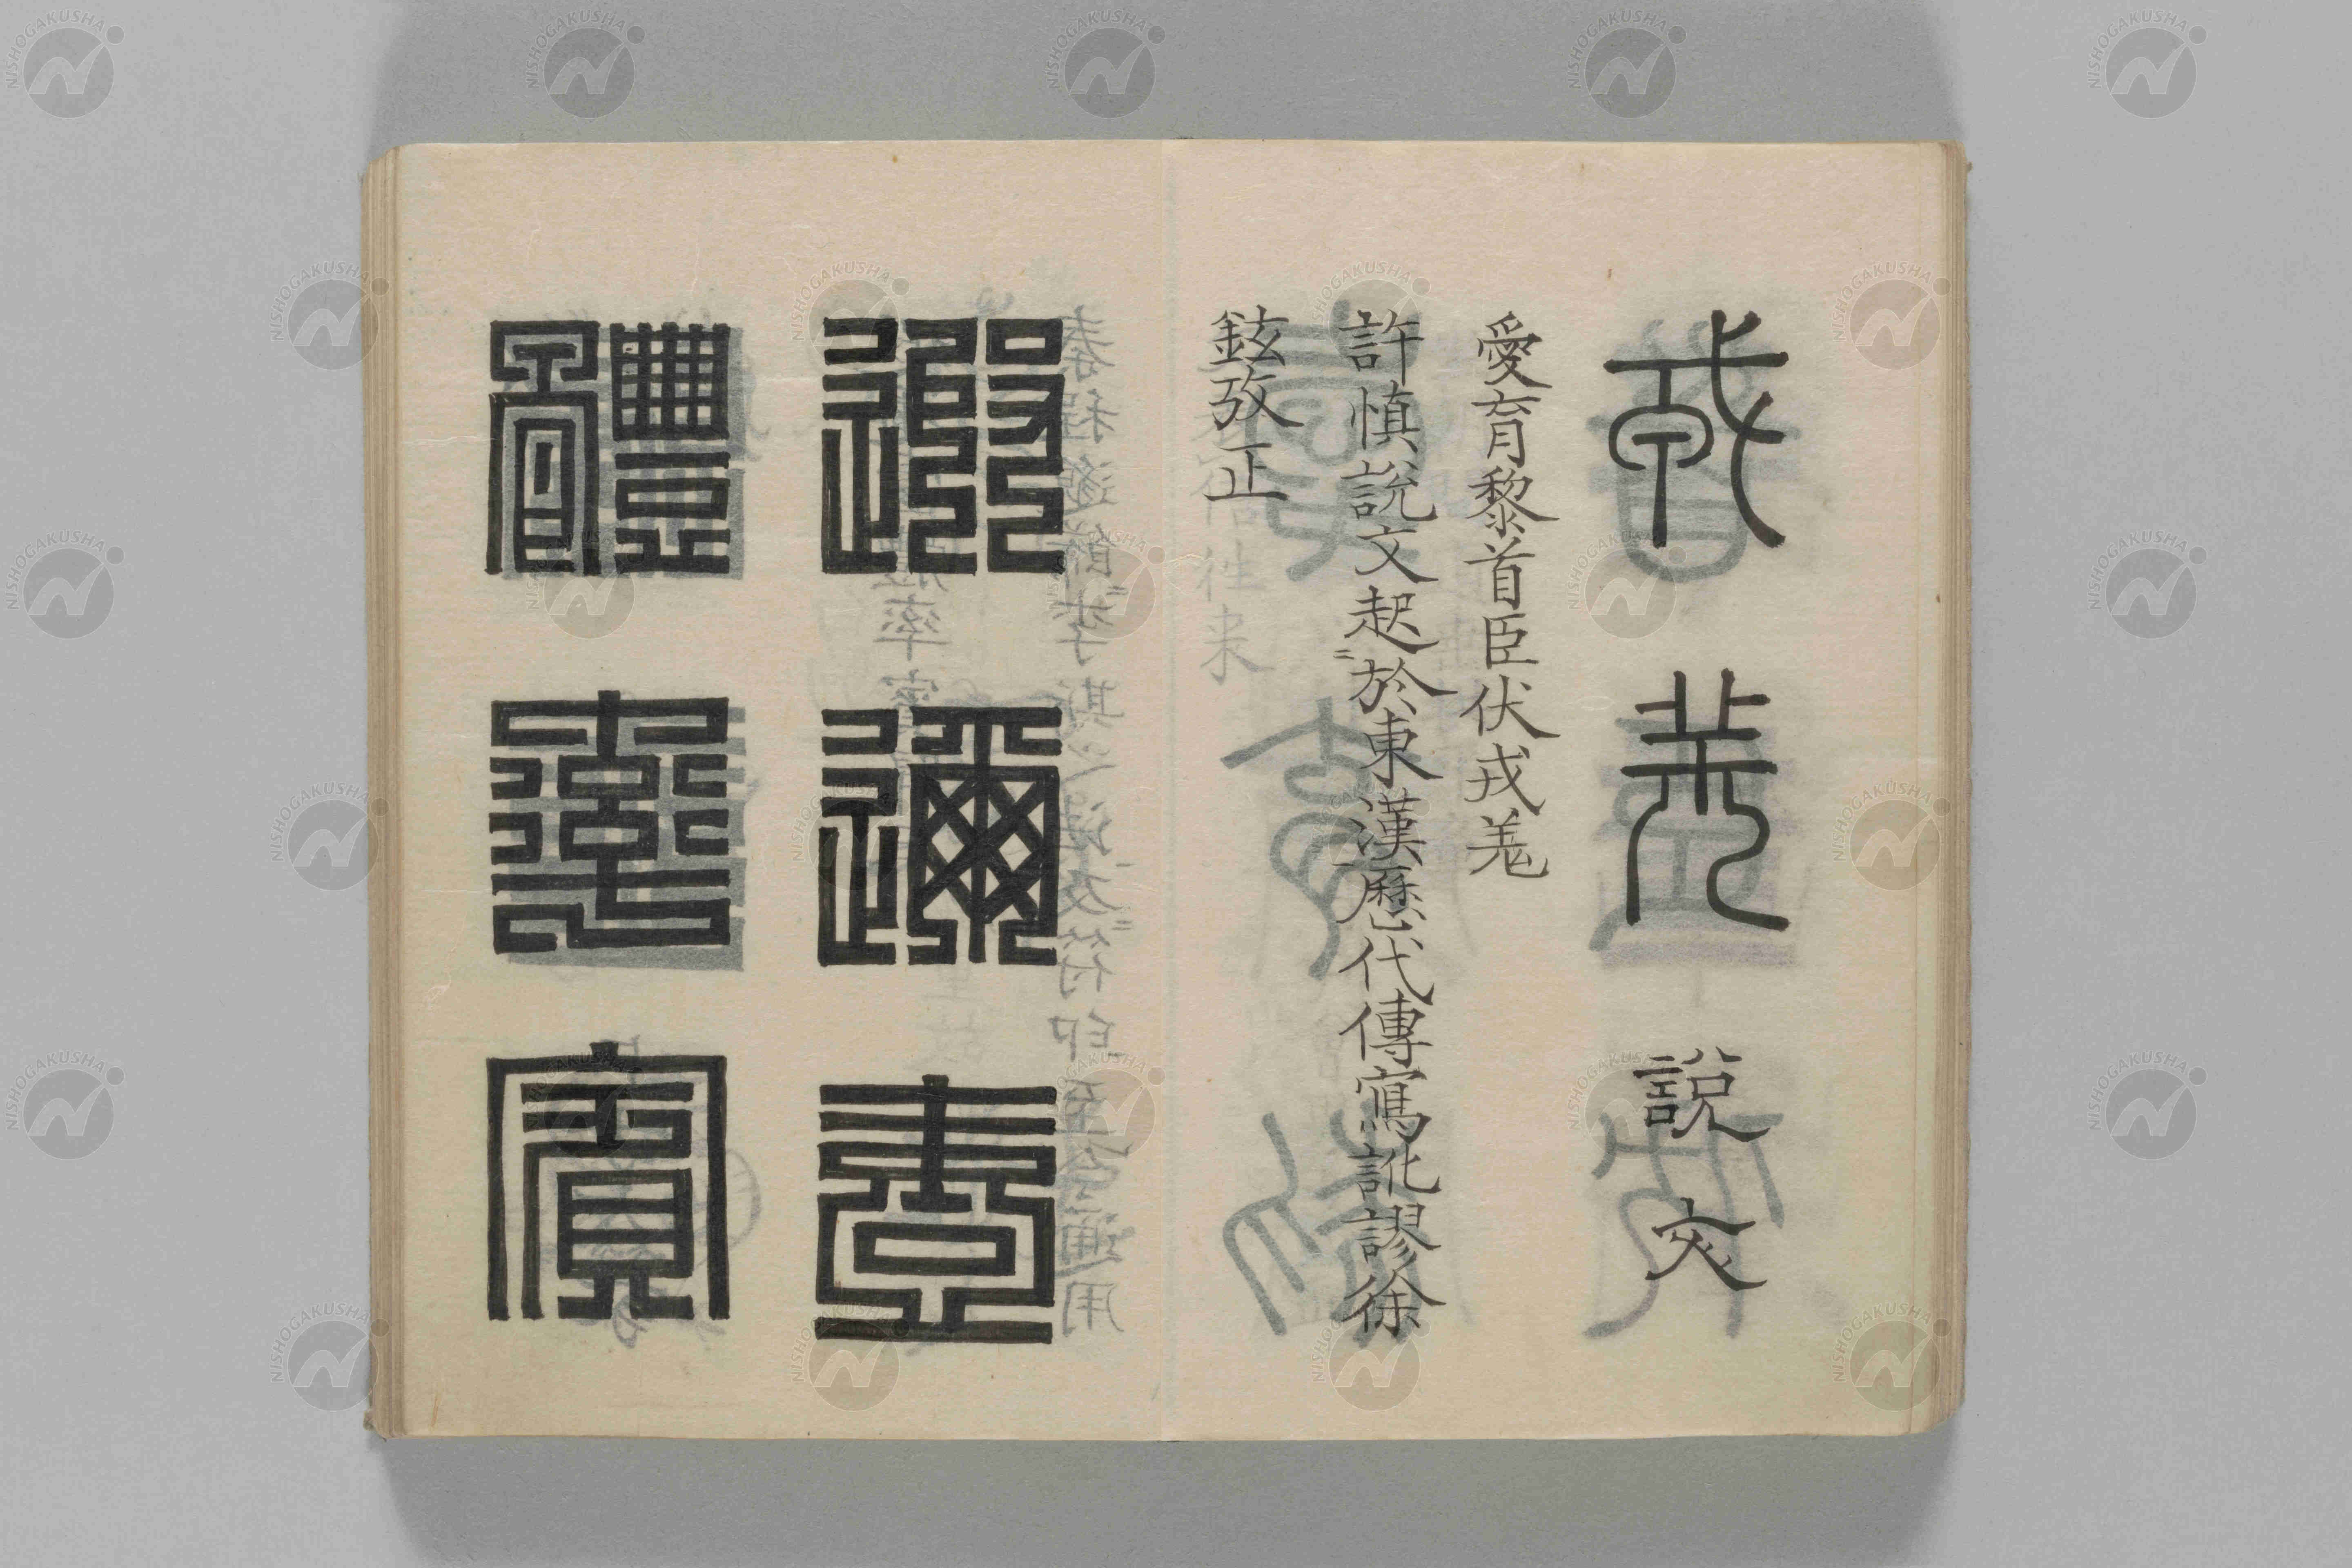 戎羌 說文
愛育黎首臣伏戎羌
許慎說文起於東漢歷代傳寫訛謬徐
鉉攷正
遐邇壹
體率賓
NISHOGAKUSHA